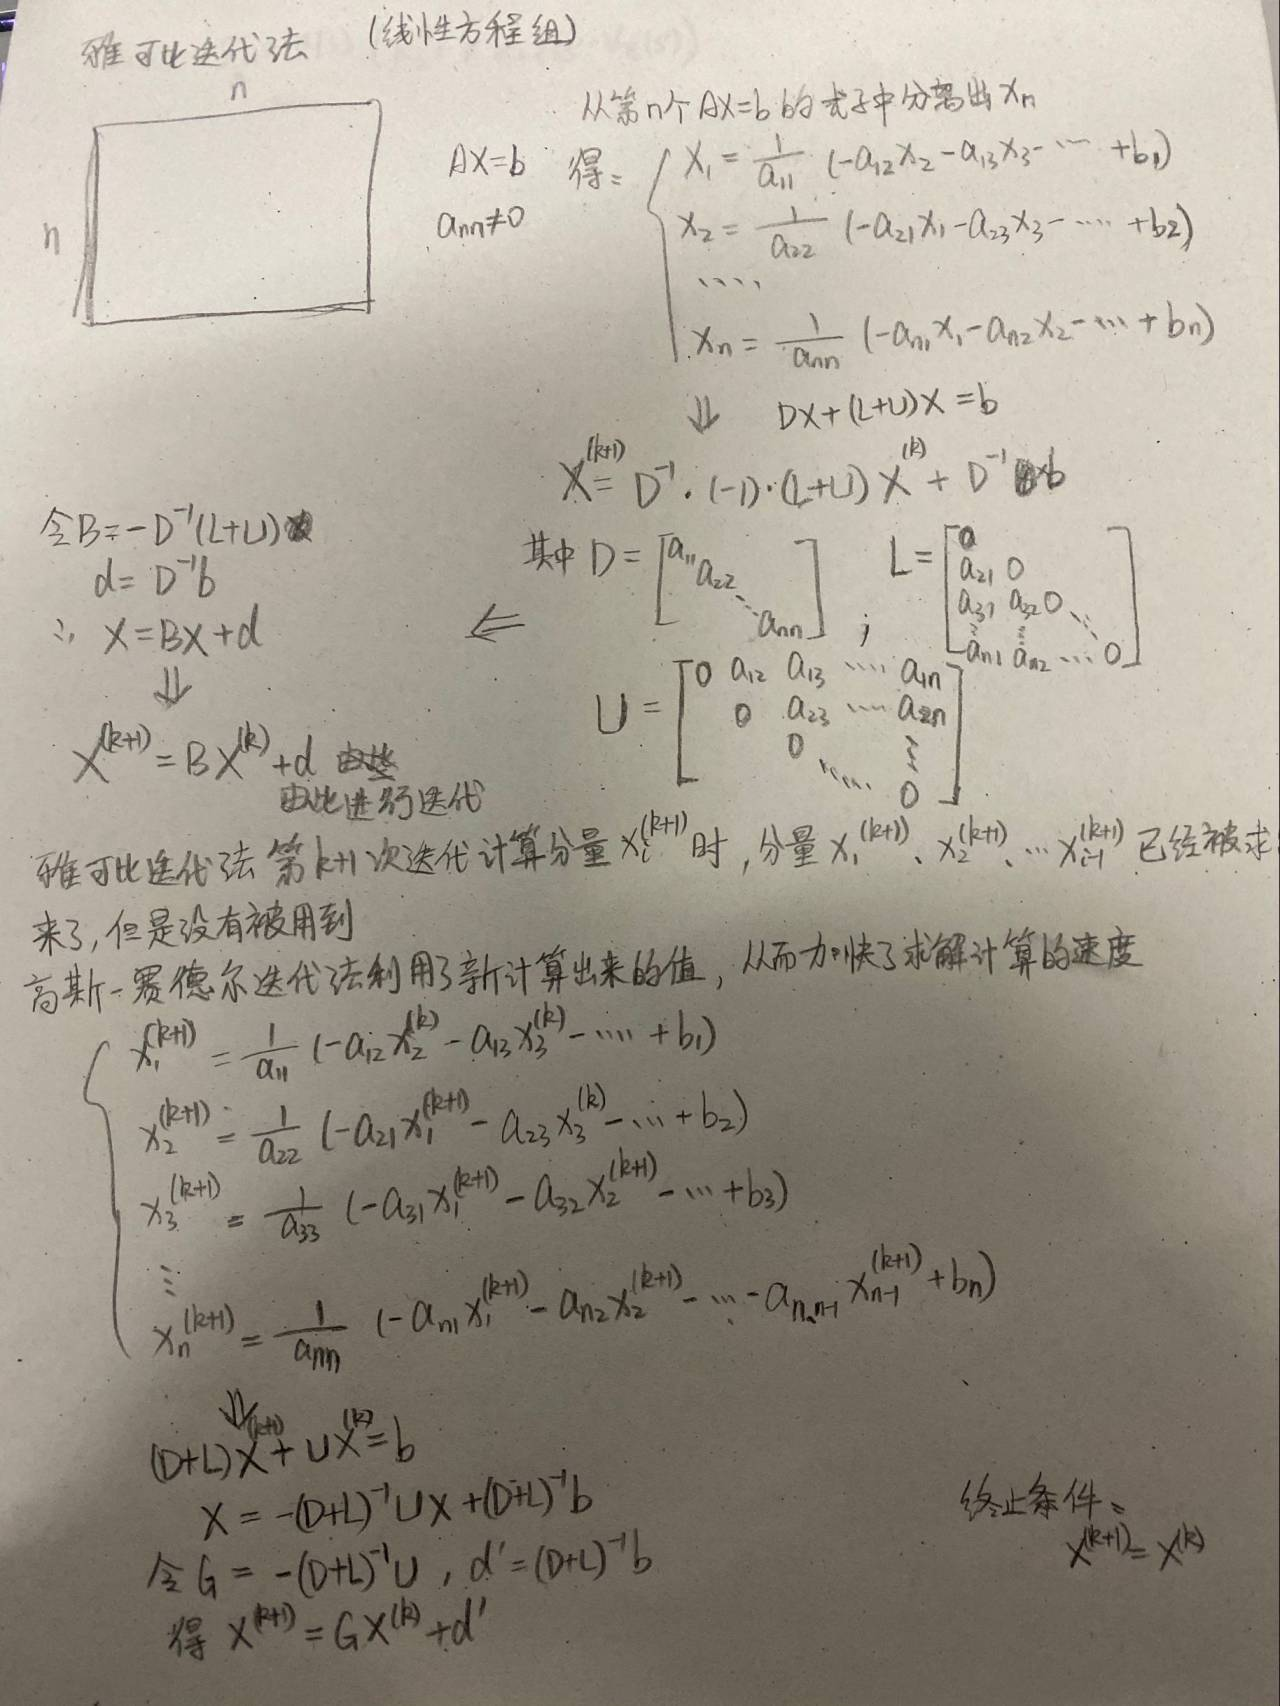 雅可比迭代法 (线性方程组)
n
n
AX=b
ann≠0
从第n个AX=b的式子中分离出xn
得:
x₁ = 1/a₁₁ (-a₁₂x₂-a₁₃x₃-… +b₁)
x₂ = 1/a₂₂ (-a₂₁x₁-a₂₃x₃-…. +b₂)
....
xₙ = 1/aₙₙ (-aₙ₁x₁-aₙ₂x₂-…+bₙ)
⇓ DX+(L+U)X=b
X^(k+1) = D⁻¹·(-1)·(L+U)X^(k) + D⁻¹b
其中 D = [a₁₁ a₂₂ ⋱ aₙₙ] ;
L = [0
a₂₁ 0
a₃₁ a₃₂ 0 ⋱
⋮ ⋮
aₙ₁ aₙ₂ … 0]
U = [0 a₁₂ a₁₃ …. a₁ₙ
0 a₂₃ …. a₂ₙ
0 ⋮
⋱ 0]
⇐
令B=-D⁻¹(L+U)
d=D⁻¹b
∴ X=BX+d
⇓
X^(k+1)=BX^(k)+d
由此进行迭代
雅可比迭代法第k+1次迭代计算分量xᵢ^(k+1)时,分量x₁^(k+1)、x₂^(k+1)、…xᵢ₋₁^(k+1)已经被求
来了,但是没有被用到
高斯-赛德尔迭代法利用了新计算出来的值,从而加快了求解计算的速度
x₁^(k+1) = 1/a₁₁ (-a₁₂x₂^(k)-a₁₃x₃^(k)-….+b₁)
x₂^(k+1) = 1/a₂₂ (-a₂₁x₁^(k+1)-a₂₃x₃^(k)-…+b₂)
x₃^(k+1) = 1/a₃₃ (-a₃₁x₁^(k+1)-a₃₂x₂^(k+1)-…+b₃)
⋮
xₙ^(k+1) = 1/aₙₙ (-aₙ₁x₁^(k+1)-aₙ₂x₂^(k+1)-…-aₙ,ₙ₋₁xₙ₋₁^(k+1)+bₙ)
⇓
(D+L)X^(k+1)+UX^(k)=b
X=-(D+L)⁻¹UX+(D+L)⁻¹b
令G=-(D+L)⁻¹U,d'=(D+L)⁻¹b
得 X^(k+1)=GX^(k)+d'
终止条件:
X^(k+1)=X^(k)